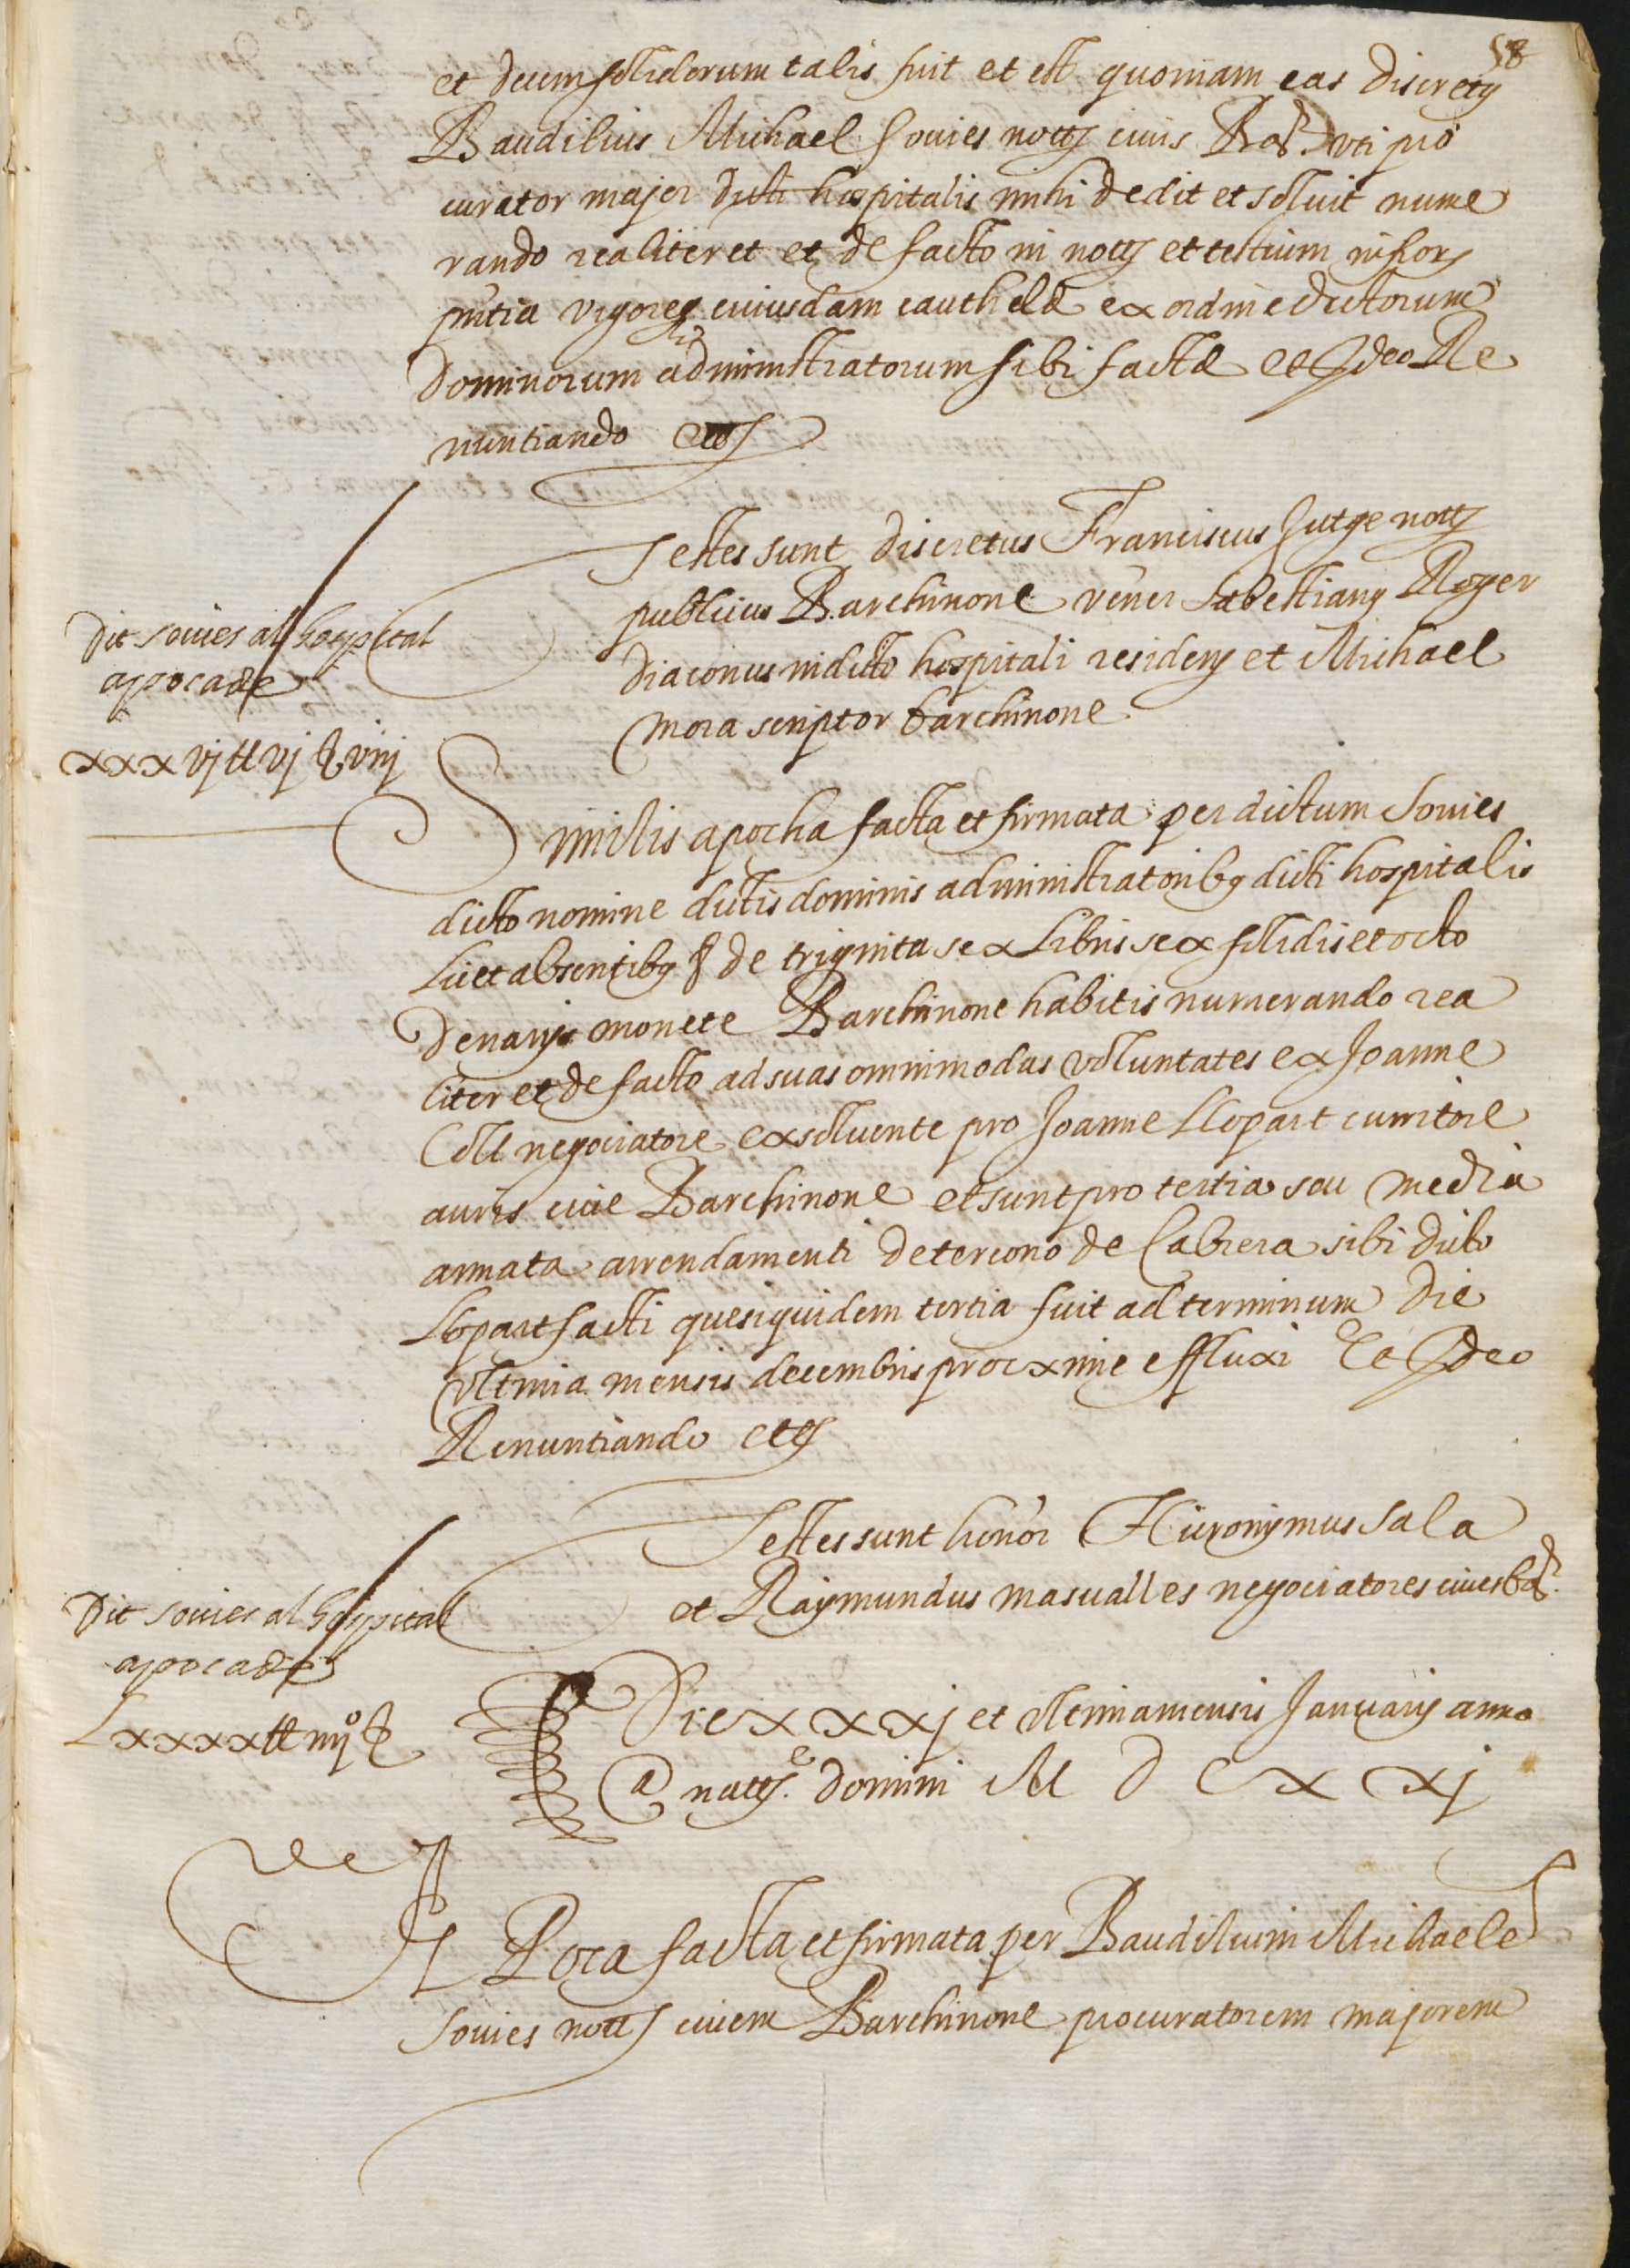 58
et decem solidorum talis fuit et est quoniam eas discretus
Baudilius Michael Sovies nottus civis Bar. uti pro
curator major dicti hospitalis mihi dedit et solvit nume
rando realiter et et de facto in nottii et testium infror
pntia vigore cuiusdam cauthelæ ex ordine dictorum
dominorum administratorum sibi factæ et Ideo Re
nuntiando etc
Testes sunt discretus Franciscus Jutge nottus
publicus Barchinone vener Sabestianus Roger
diaconus in dicto hospitali residens et Michael
Mora scriptor barchinone
Dit sovies al hospital
apoca de
xxxvj ll vj s viij
Similis apocha facta et firmata per dictum Sovies
dicto nomine dictis dominis administratoribus dicti hospitalis
licet absentibus &c de triginta sex Libris sex solidis et octo
denarijs monete Barchinone habitis numerando rea
liter et de facto ad suas omnimodas voluntates ex Joanne
Coll negociatore exsolvente pro Joanne Llopart curritore
auris cive Barchinone et sunt pro tertia seu media
annata arrendamenti de tercono de Cabrera sibi dicto
Llopart facti quesiquidem tertia fuit ad terminum die
ultima mensis decembris procxime effluxi Et Ideo
Renuntiando etc
Testes sunt honor Hieronymus Sala
et Raymundus Masvalles negociatores cives Bar.
Dit sovies al hospital
apoca de
Lxxxx ll iiij s
Die xxxj et ultima mensis Januarij anno
a natte. domini M D C x xj
APoca facta et firmata per Baudilium Michaele
Sovies nottum civem Barchinone procuratorem majorem